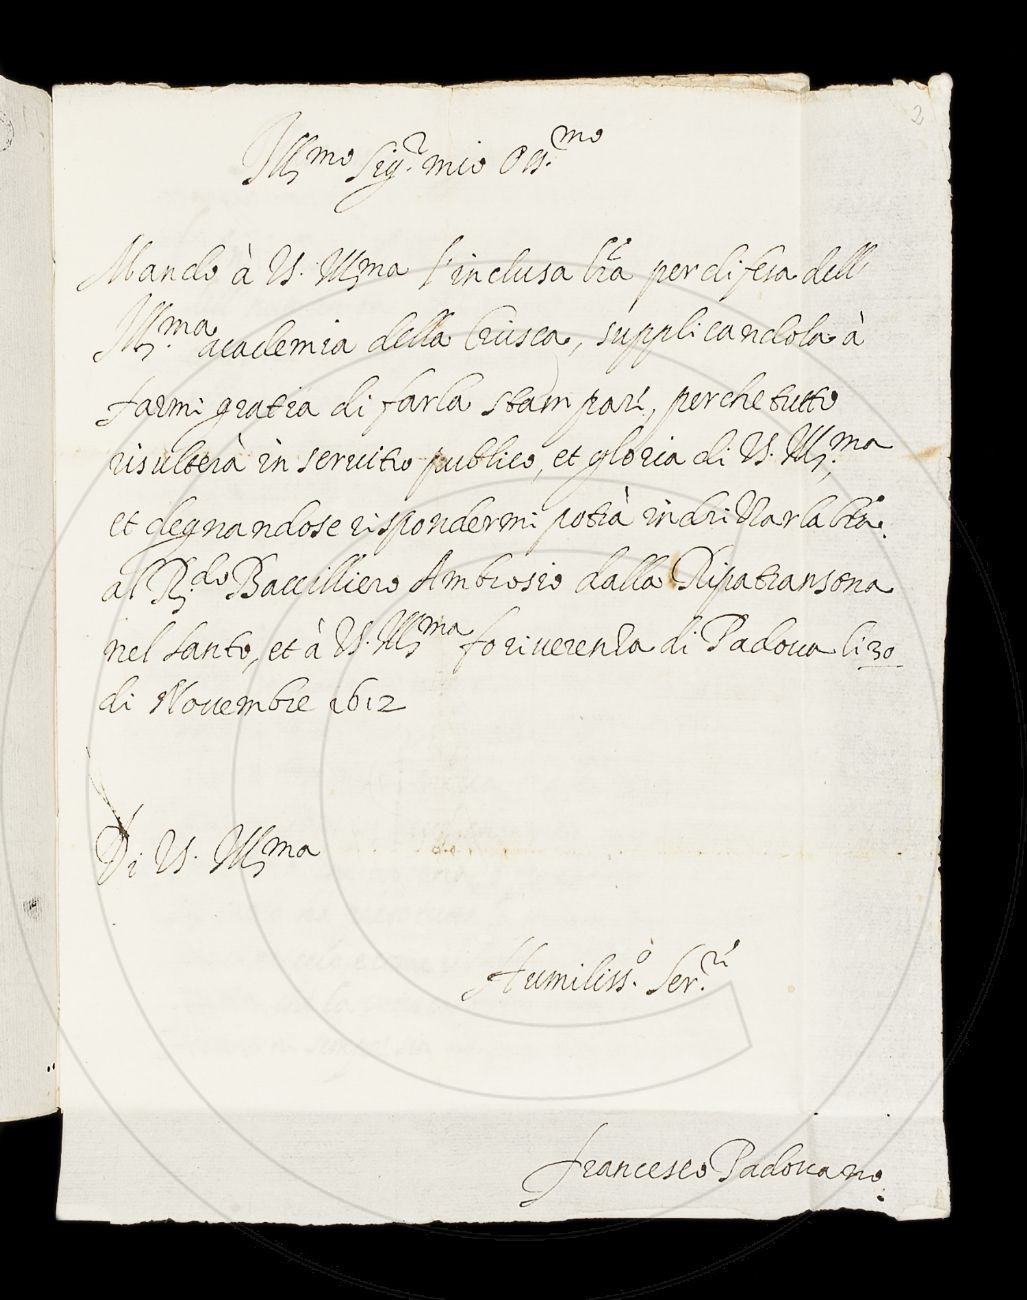 2
Ill.mo Sig.r mio Oss.mo
Mando à V.S. Ill.ma l'inclusa lr̃a per difesa dell'
Ill.ma academia della Crusca, supplicandola à
farmi gratia di farla stampare, perche tutto
risulterà in servitio publico, et gloria di V.S. Ill.ma
et degnandose rispondermi potrà indrizzar la lr̃a.
al R.do Baccilliero Ambrosio dalla Ripatransona
nel santo, et à V.S. Ill.ma fo riverenza di Padova li 30
di Novembre 1612
Di V.S. Ill.ma
Humiliss.o Ser.re
Francesco Padovano